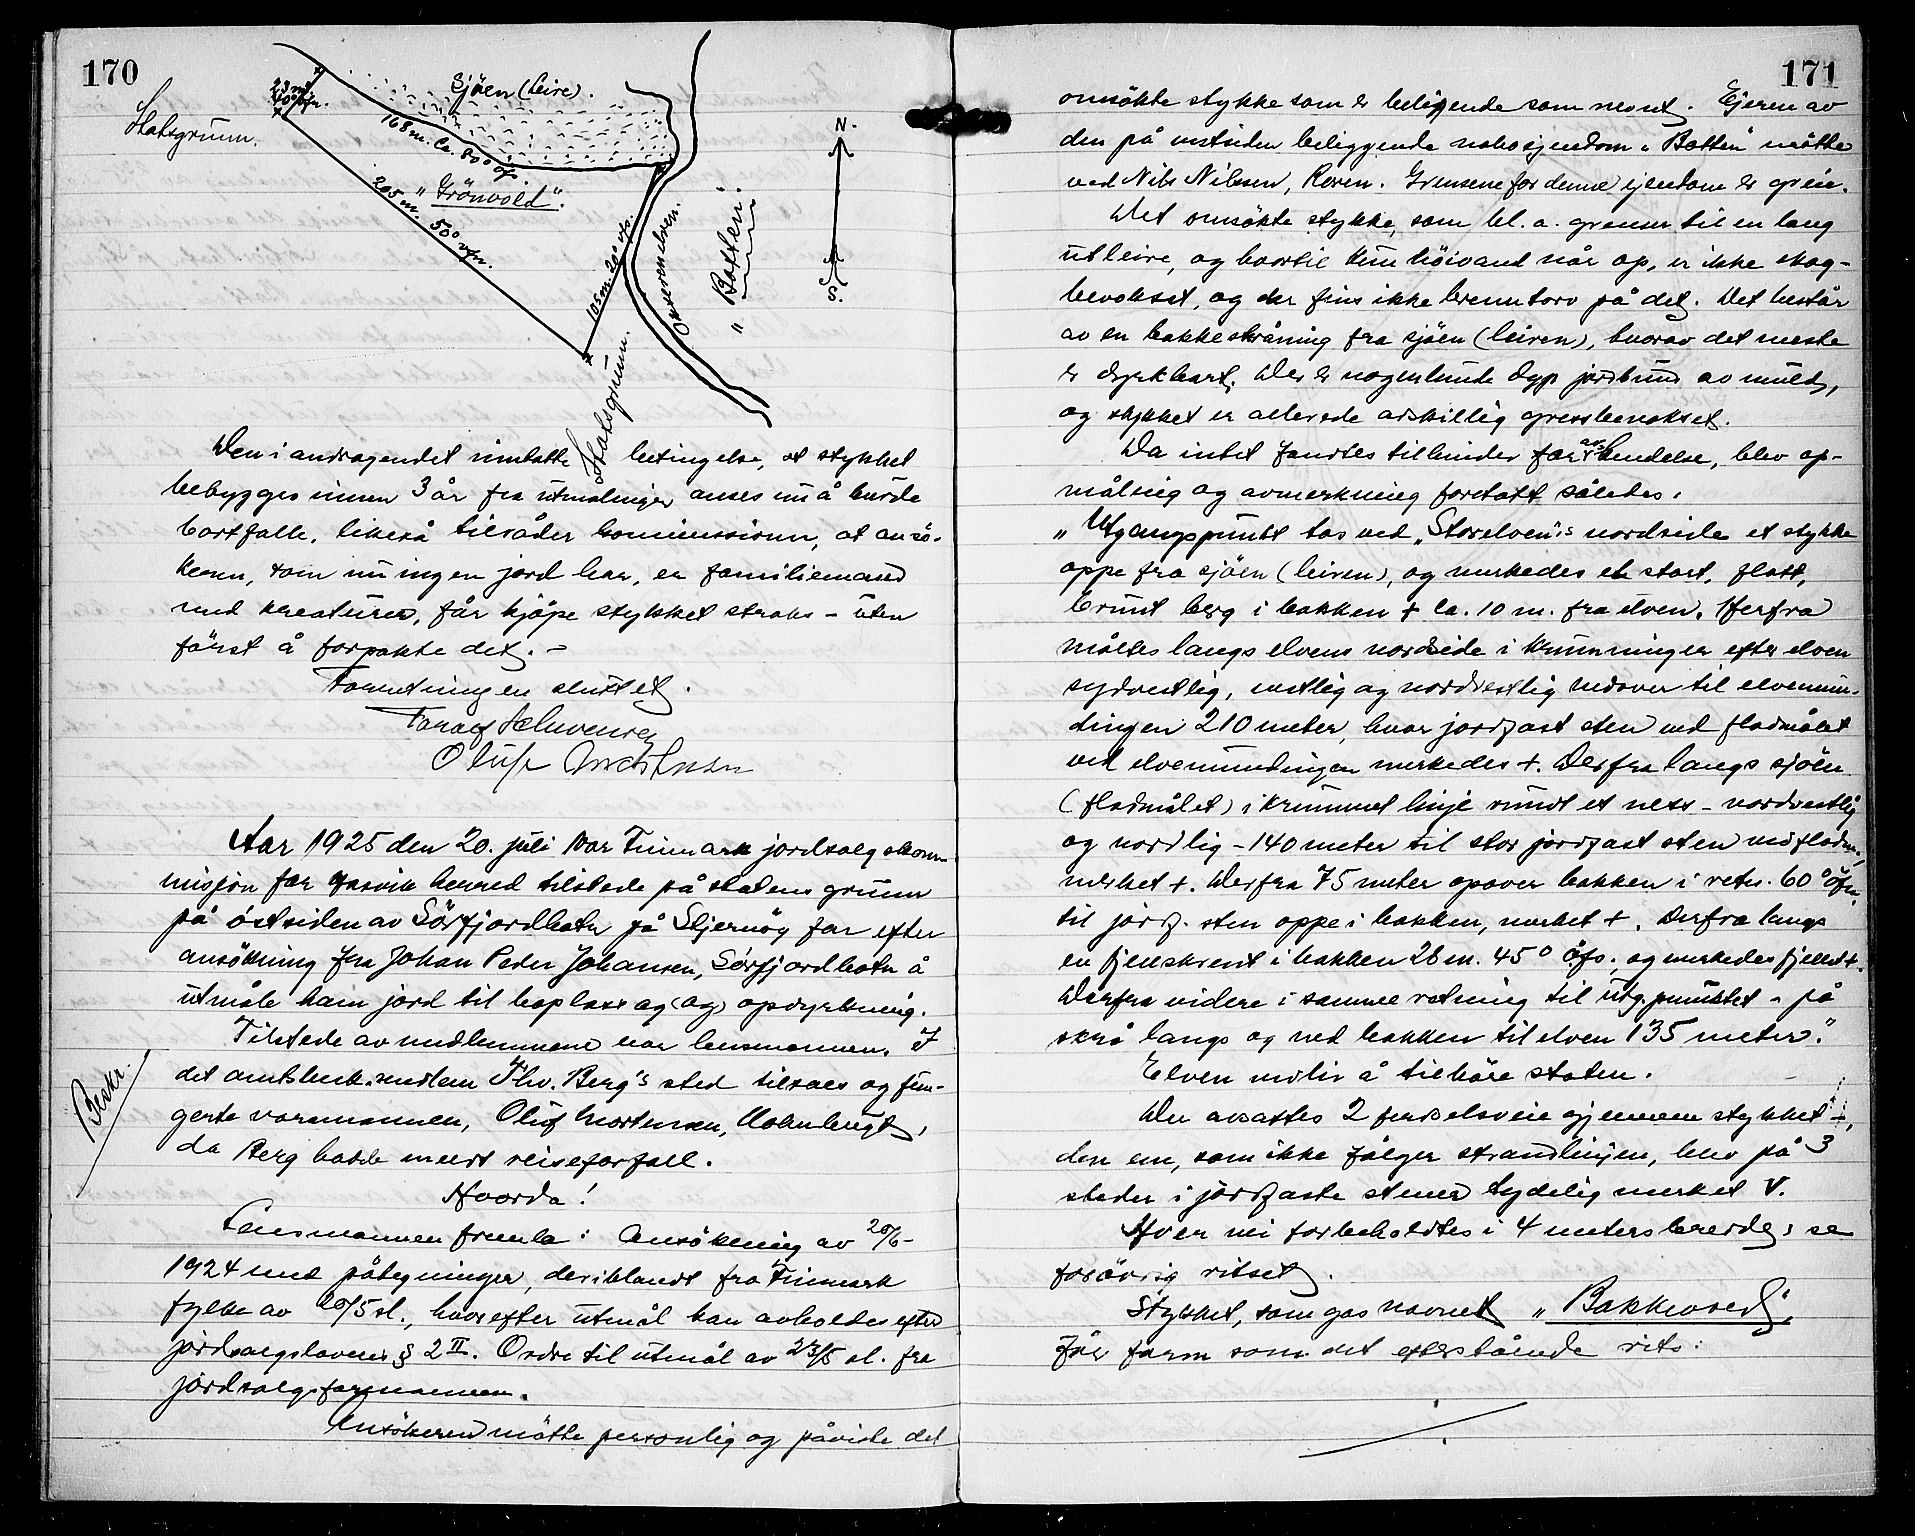 170
Statsgrunn.
23 m.
Sjöen (Leire).
168 m. Ca. 800
"Grönvold".
205 m. 500 vfn.
105 m. 200 vfs.
"Botten"
N.
S.
Statsgrunn.
Den i andragendet inntatte betingelse, at stykket
bebygges innen 3 år fra utmålinger anses nu å burde
bortfalle. Likeså tilråder kommissionen, at ansö-
keren, som nu ingen jord har, er familiemand
med kreaturer, får kjöpe stykket straks - uten
först å forpakte det. -
Forretningen sluttet.
Oluf Mortensen
Aar 1925 den 20. juli var Finmark jordsalgskom-
misjon for herred tilstede på statens grunn
på östsiden av Sörfjordbotn på Stjernöy for efter
ansökning fra Johan Peder Johansen, Sörfjordbotn å
utmåle ham jord til boplass og (og) opdyrkning.
Tilstede av medlemmene var lensmannen. I
det amtsbesk. medlem Thv. Berg's sted tilkaes og fun-
gerte varamannen, Oluf Mortensen,
da Berg hadde meldt reiseforfall.
Beskr.
Hvorda!
Lensmannen fremla: Ansökning av 20/6-
1924 med påtegninger, deriblandt fra Finmark
fylke av 20/5 sl., hvorefter utmål kan avholdes efter
jordsalgslovens § 2 II. Ordre til utmål av 23/5 sl. fra
jordsalgsformannen.
Ansökeren mötte personlig og påviste det
171
omsökte stykke som er beliggende som nevnt. Ejeren av
den på vestsiden beliggende naboejendom "Botten" mötte
ved Nils Nilssen, Grensene for denne ejendom er greie.
Det omsökte stykke, som bl. a. grenser til en lang
utleire, og hvortil kun höivand når op, er ikke skog-
bevokset, og der fins ikke brenntorv på det. Det består
av en bakkeskråning fra sjöen (leiren), hvorav det meste
er dyrkbart. Der er nogenlunde dyp jordbund av muld,
og stykket er allerede adskillig gressbevokset.
Da intet fandtes til hinder for avhendelse, blev op-
måling og avmerkning foretatt således:
"Utgangspunkt tas ved "Storelven"s nordside et stykke
oppe fra sjöen (leiren), og merkedes et stort, flatt,
brunt berg i bakken + ca. 10 m. fra elven. Herfra
måltes langs elvens nordside i krumninger efter elven
sydvestlig, vestlig og nordvestlig nedover til elvemun-
dingen 210 meter, hvor jordfast sten ved flodmålet
ved elvemundingen merkedes +. Derfra langs sjöen
(flodmålet) i krummet linje rundt et ness - nordvestlig
og nordlig - 140 meter til stor jordfast sten ved flodm.,
merket +. Derfra 75 meter opover bakken i retn. 60° öfn.
til jordf. sten oppe i bakken, merket +. Derfra langs
en fjellskrent i bakken 28 m. 45° öfs., og merkedes fjellet +.
Derfra videre i samme retning til utg.punktet - på
skrå langs og ned bakken til elven 135 meter."
Elven å tilhöre staten.
Der avsattes 2 ferdselsveie gjennem stykket -,
den ene, som ikke fölger strandlinjen, blev på 3
steder i jordfaste stener tydelig merket V.
Hver vei forbeholdtes i 4 meters bredde; se
forövrig ritset.
Stykket, som gas navnet "Bakkevoll",
får form som det efterstående rits: